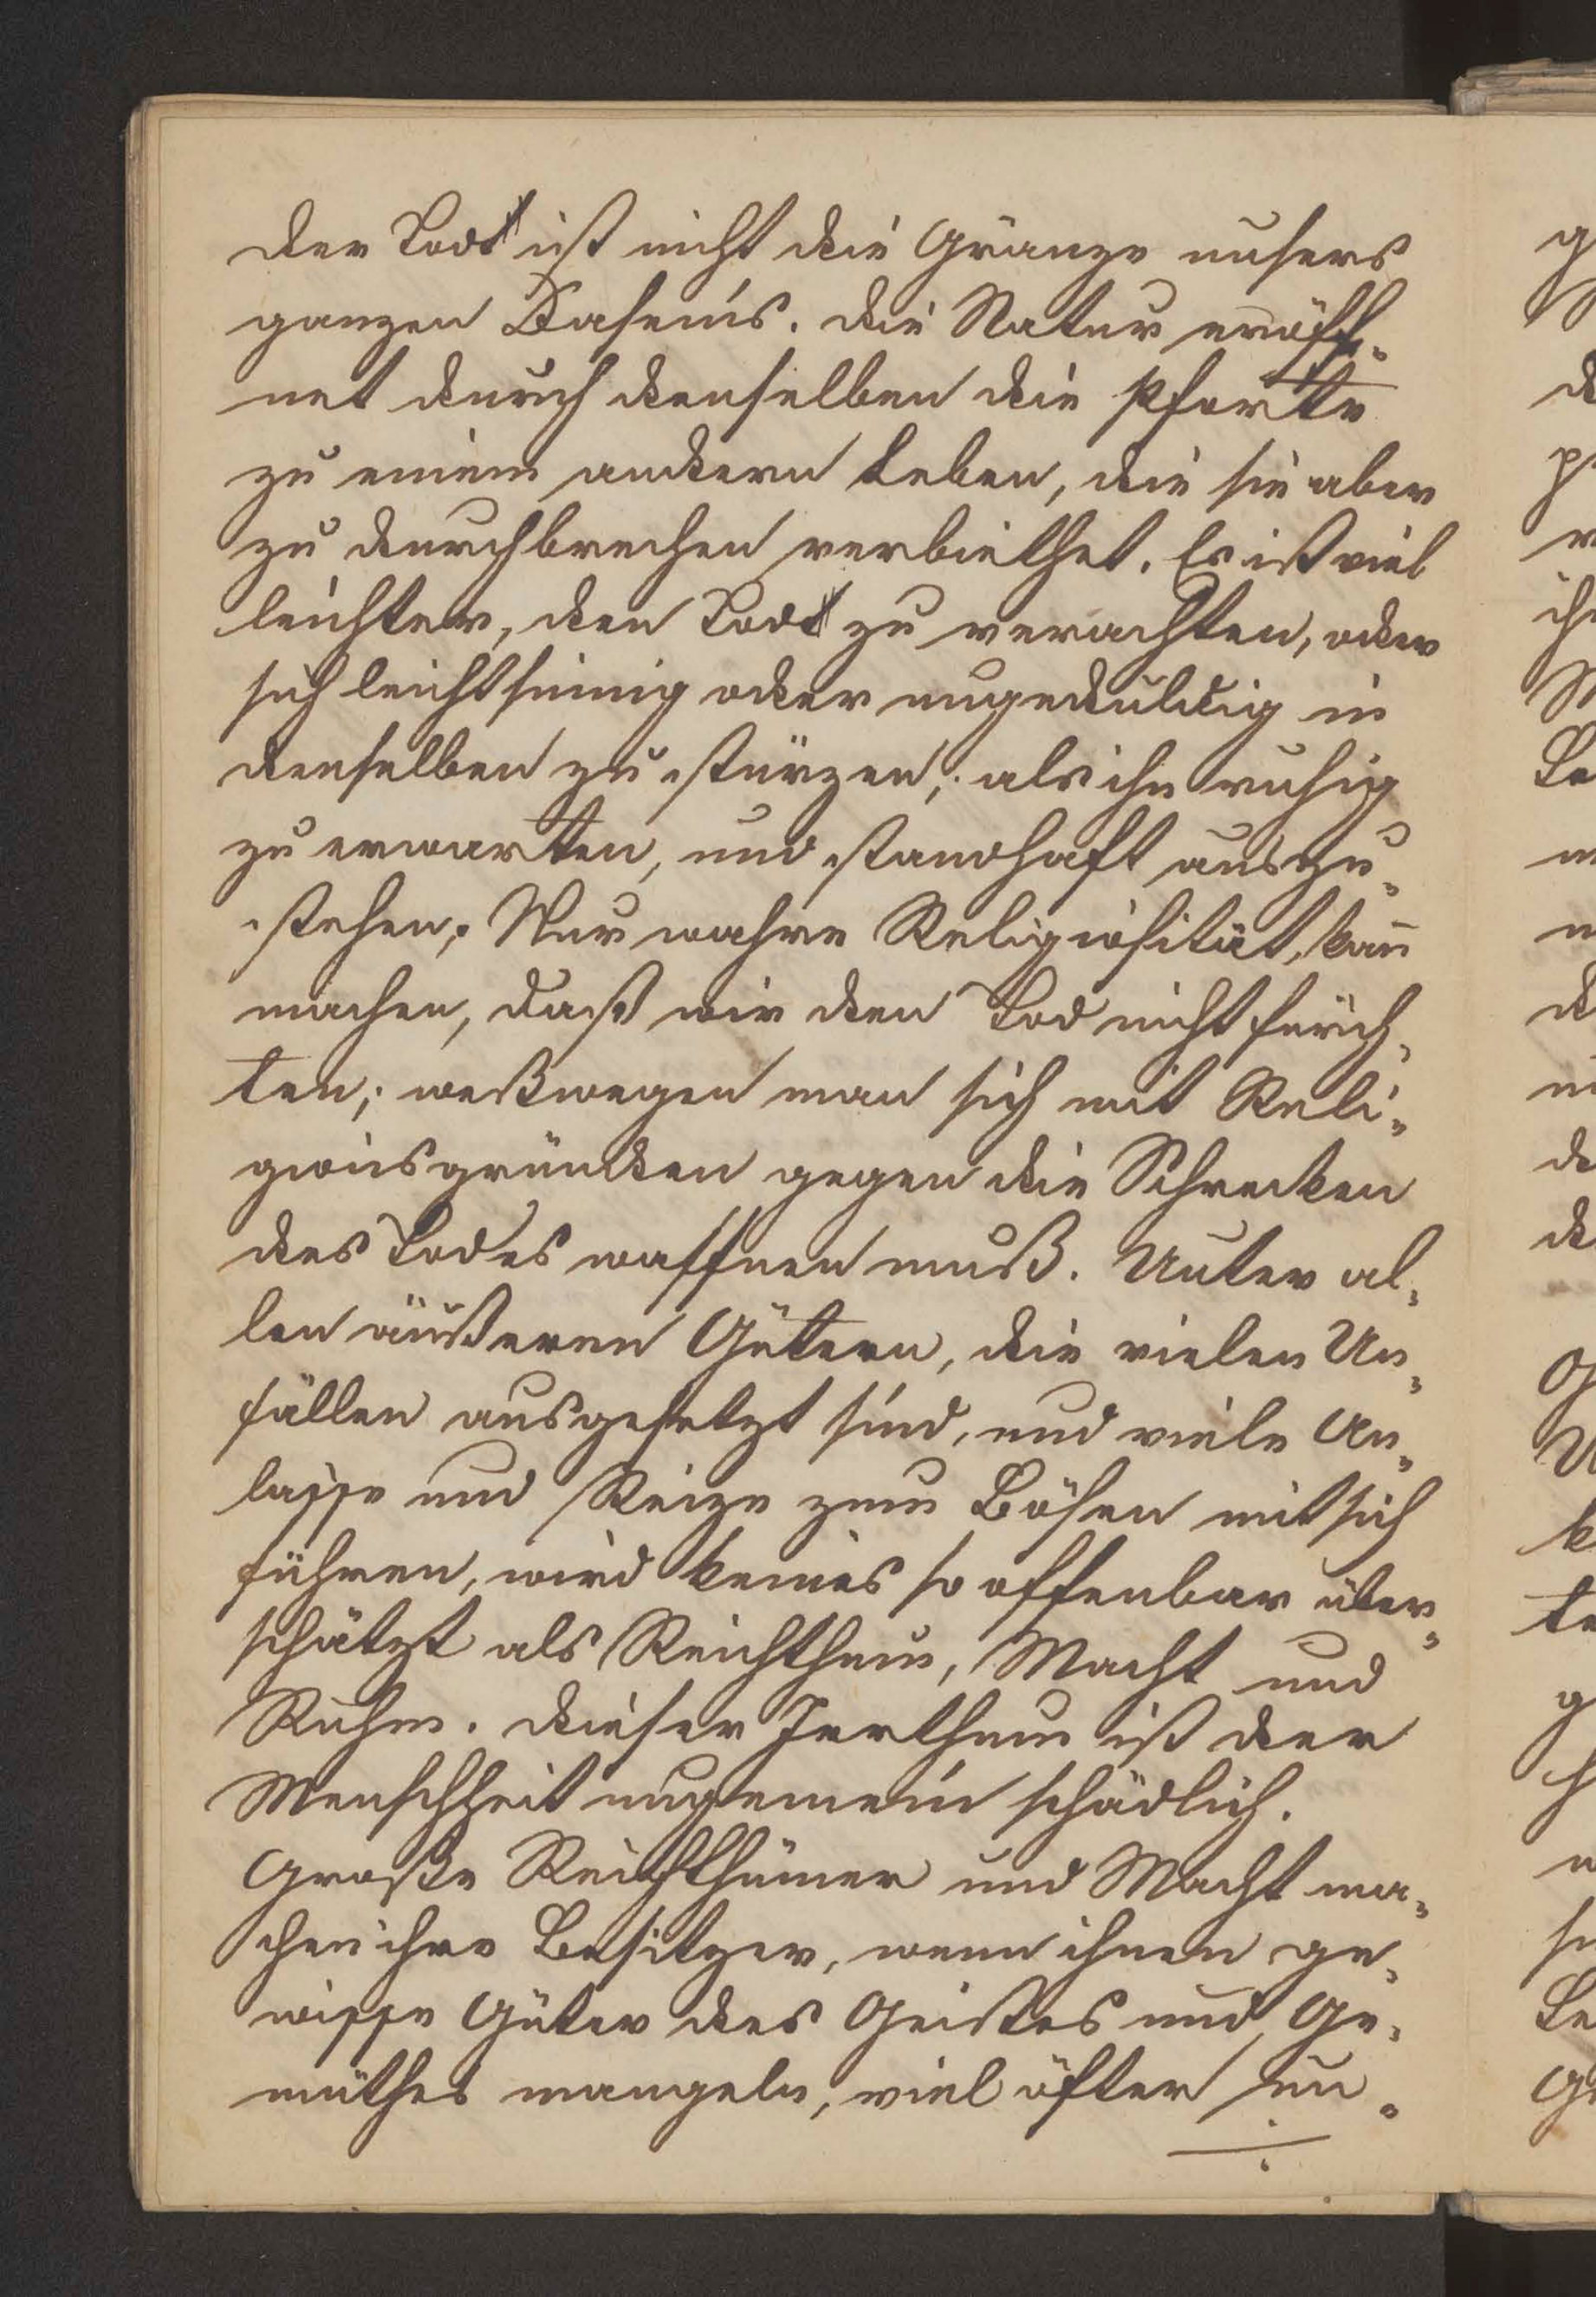 der Tod ist nicht die Gränze unsers
ganzen Daseins. Die Natur eröff-
net durch denselben die Pforte
zu einem andern Leben, die sie aber
zu durchbrechen verbiethet. Es ist viel
leichter, den Tod zu verachten, oder
sich leichtsinnig oder ungeduldig in
denselben zu stürzen, als ihn ruhig
zu erwarten, und standhaft auszu-
stehen; Nur wahre Religiosität, kann
machen, daß wir den Tod nicht fürch-
ten; weßwegen man sich mit Reli-
gionsgründen gegen die Schrecken
des Todes waffnen muß. Unter al-
len äußeren Gütern, die vielen Un-
fällen ausgesetzt sind, und viele An-
lasse und Reize zum Bösen mit sich
führen, wird keines so offenbar über-
schätzt als Reichthum, Macht und
Ruhm. Dieser Irrthum ist der
Menschheit ungemein schädlich.
Große Reichthümer und Macht ma-
chen ihre Besitzer, wenn ihnen ge-
wisse Güter des Geistes und Ge-
müthes mangeln, viel öfter un-